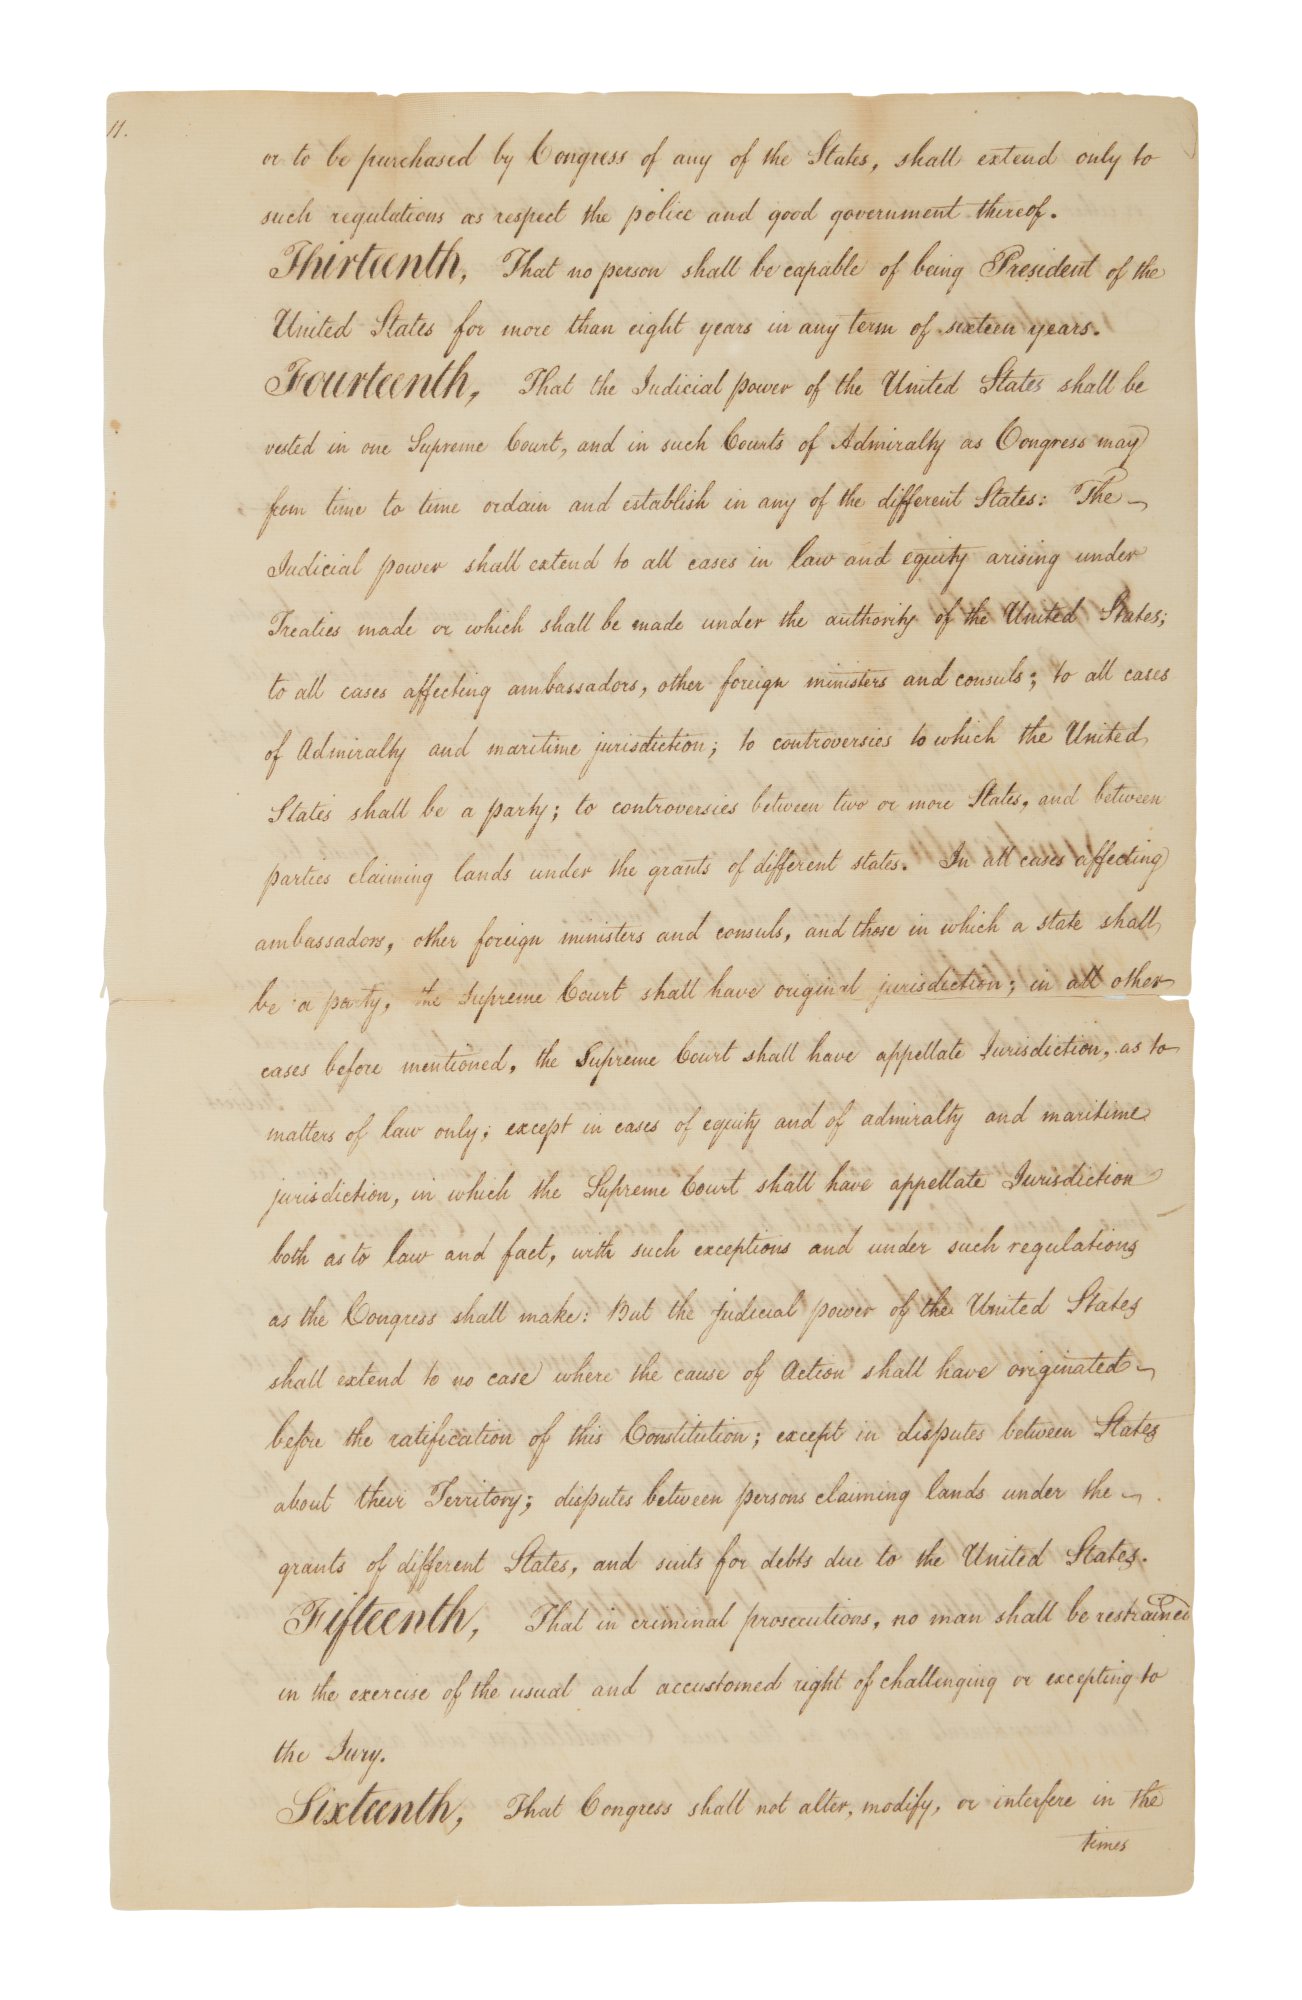 11.
or to be purchased by Congress of any of the States, shall extend only to
such regulations as respect the police and good government thereof.
Thirteenth, That no person shall be capable of being President of the
United States for more than eight years in any term of sixteen years.
Fourteenth, That the Judicial power of the United States shall be
vested in one Supreme Court, and in such Courts of Admiralty as Congress may
from time to time ordain and establish in any of the different States: The
Judicial power shall extend to all cases in law and equity arising under
Treaties made or which shall be made under the authority of the United States;
to all cases affecting ambassadors, other foreign ministers and consuls; to all cases
of Admiralty and maritime jurisdiction; to controversies to which the United
States shall be a party; to controversies between two or more States, and between
parties claiming lands under the grants of different states. In all cases affecting
ambassadors, other foreign ministers and consuls, and those in which a state shall
be a party, the Supreme Court shall have original jurisdiction; in all other
cases before mentioned, the Supreme Court shall have appellate Jurisdiction, as to
matters of law only; except in cases of equity and of admiralty and maritime
jurisdiction, in which the Supreme Court shall have appellate Jurisdiction
both as to law and fact, with such exceptions and under such regulations
as the Congress shall make: But the judicial power of the United States
shall extend to no case where the cause of Action shall have originated
before the ratification of this Constitution; except in disputes between States
about their Territory; disputes between persons claiming lands under the
grants of different States, and suits for debts due to the United States.
Fifteenth, That in criminal prosecutions, no man shall be restrained
in the exercise of the usual and accustomed right of challenging or excepting to
the Jury.
Sixteenth, That Congress shall not alter, modify, or interfere in the
times